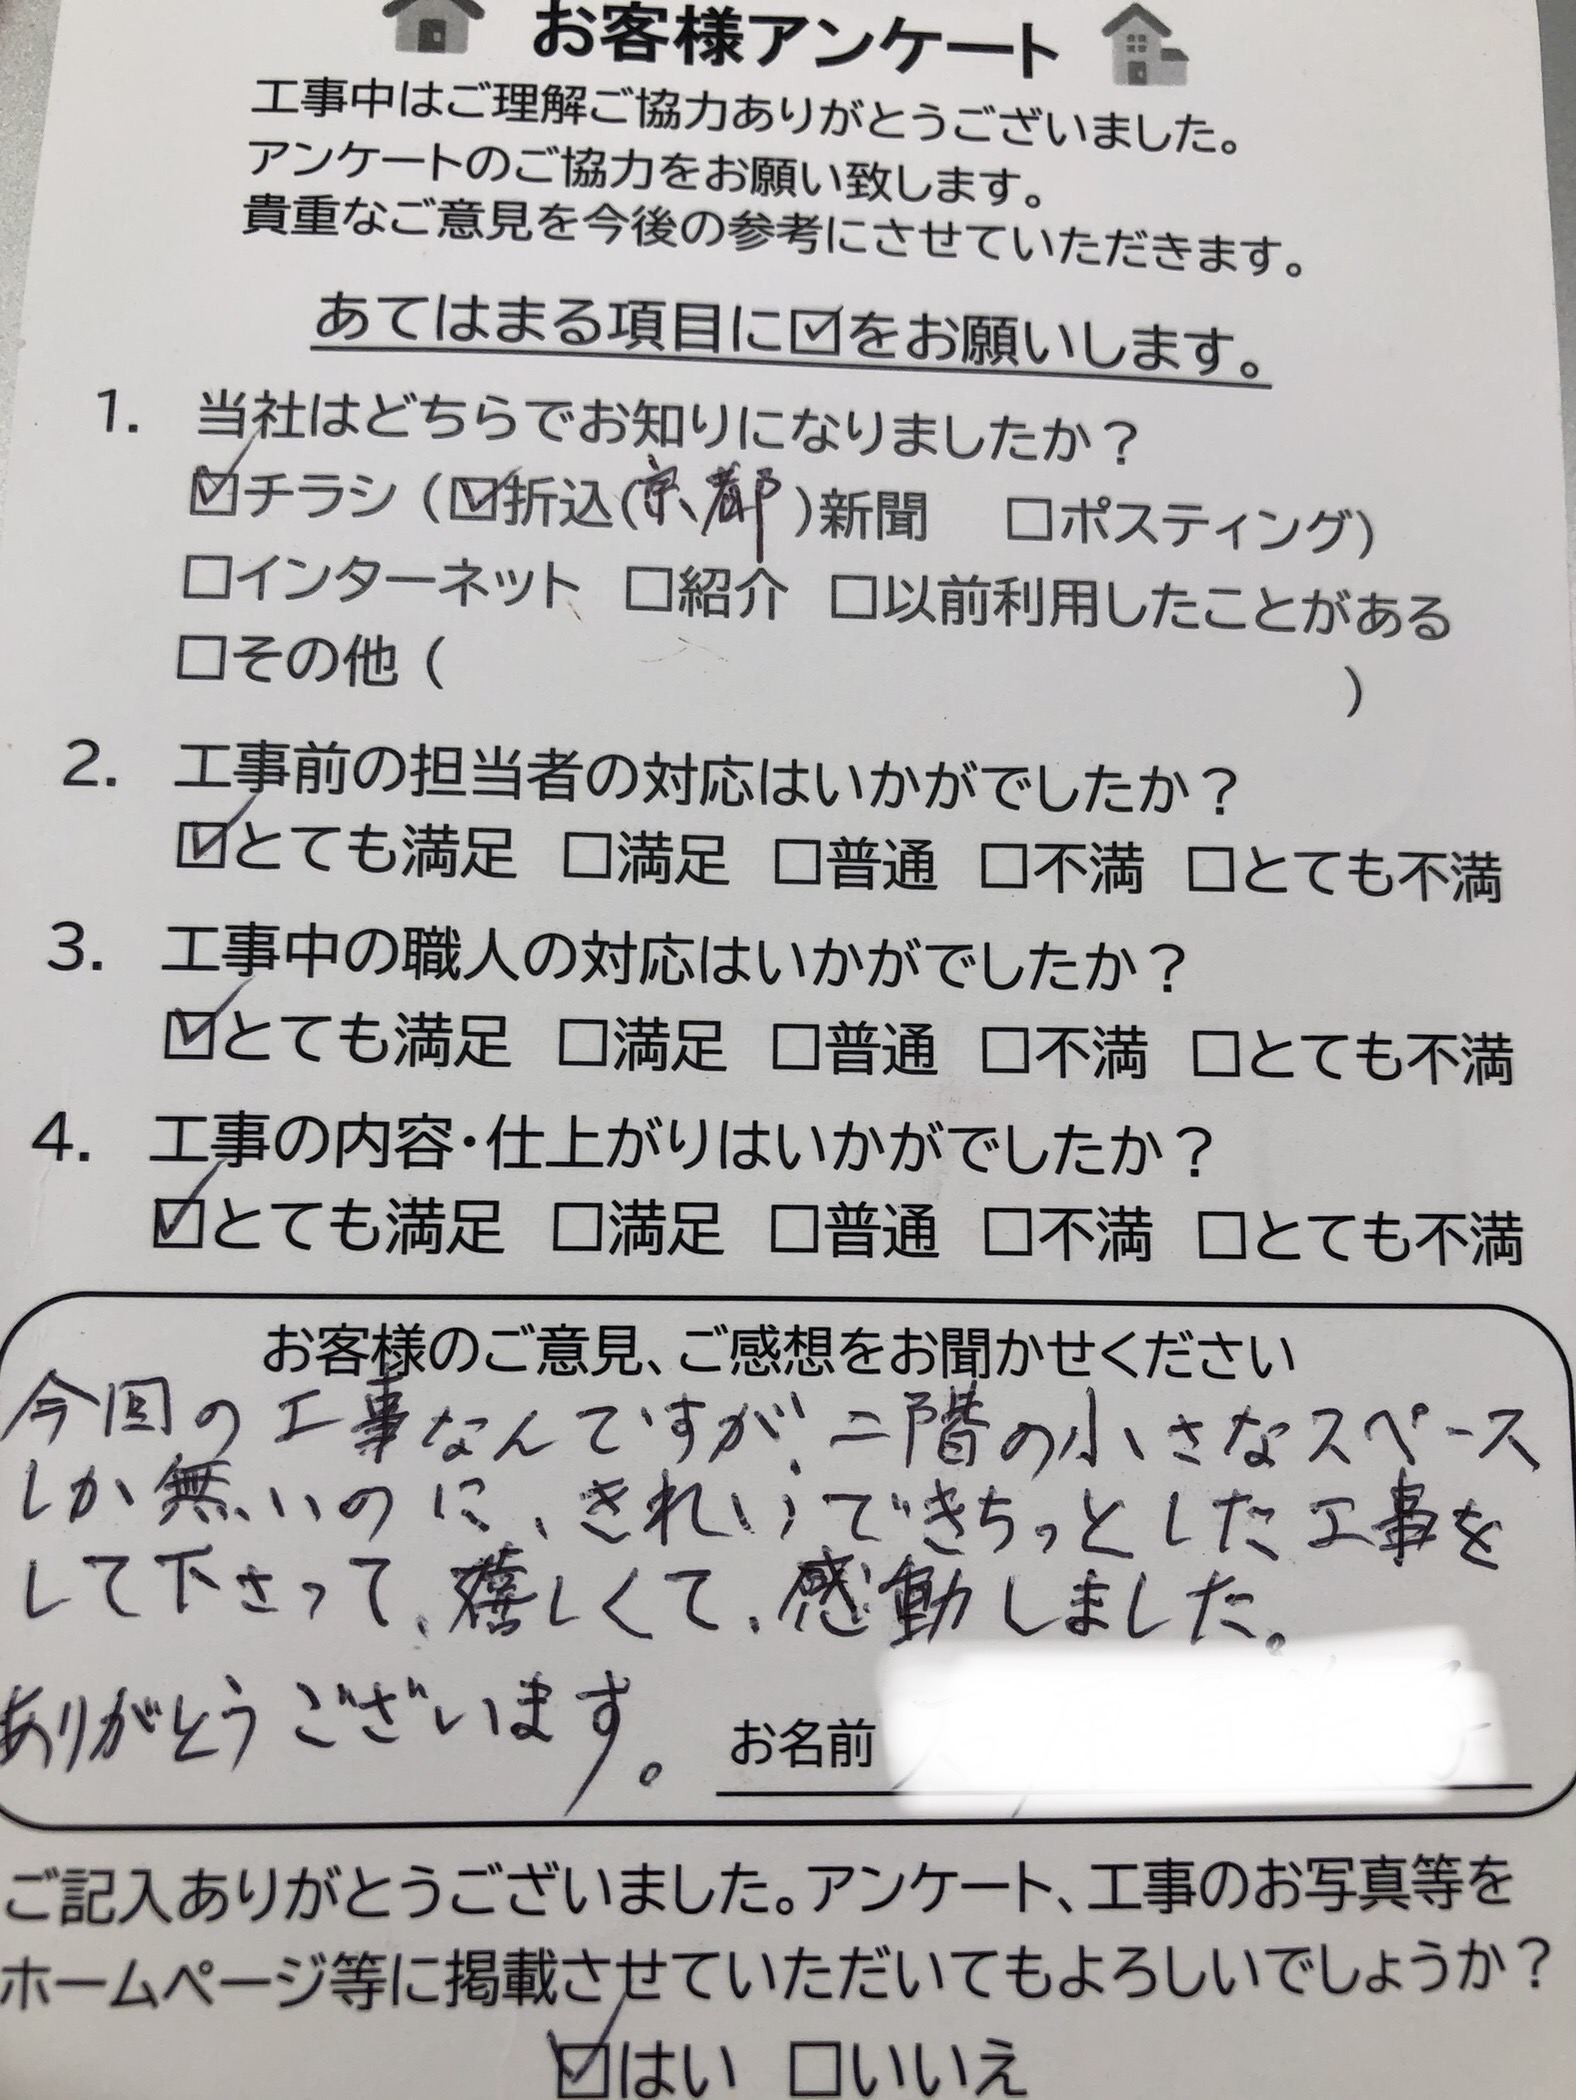 お客様アンケート
工事中はご理解ご協力ありがとうございました。
アンケートのご協力をお願い致します。
貴重なご意見を今後の参考にさせていただきます。
あてはまる項目に☑をお願いします。
1. 当社はどちらでお知りになりましたか？
☑チラシ（☑折込(京都)新聞 □ポスティング）
□インターネット □紹介 □以前利用したことがある
□その他（ ）
2. 工事前の担当者の対応はいかがでしたか？
☑とても満足 □満足 □普通 □不満 □とても不満
3. 工事中の職人の対応はいかがでしたか？
☑とても満足 □満足 □普通 □不満 □とても不満
4. 工事の内容・仕上がりはいかがでしたか？
☑とても満足 □満足 □普通 □不満 □とても不満
お客様のご意見、ご感想をお聞かせください
今回の工事なんですが、二階の小さなスペース
しか無いのに、きれいできちっとした工事を
して下さって、嬉しくて、感動しました。
ありがとうございます。
お名前
ご記入ありがとうございました。アンケート、工事のお写真等を
ホームページ等に掲載させていただいてもよろしいでしょうか？
☑はい □いいえ